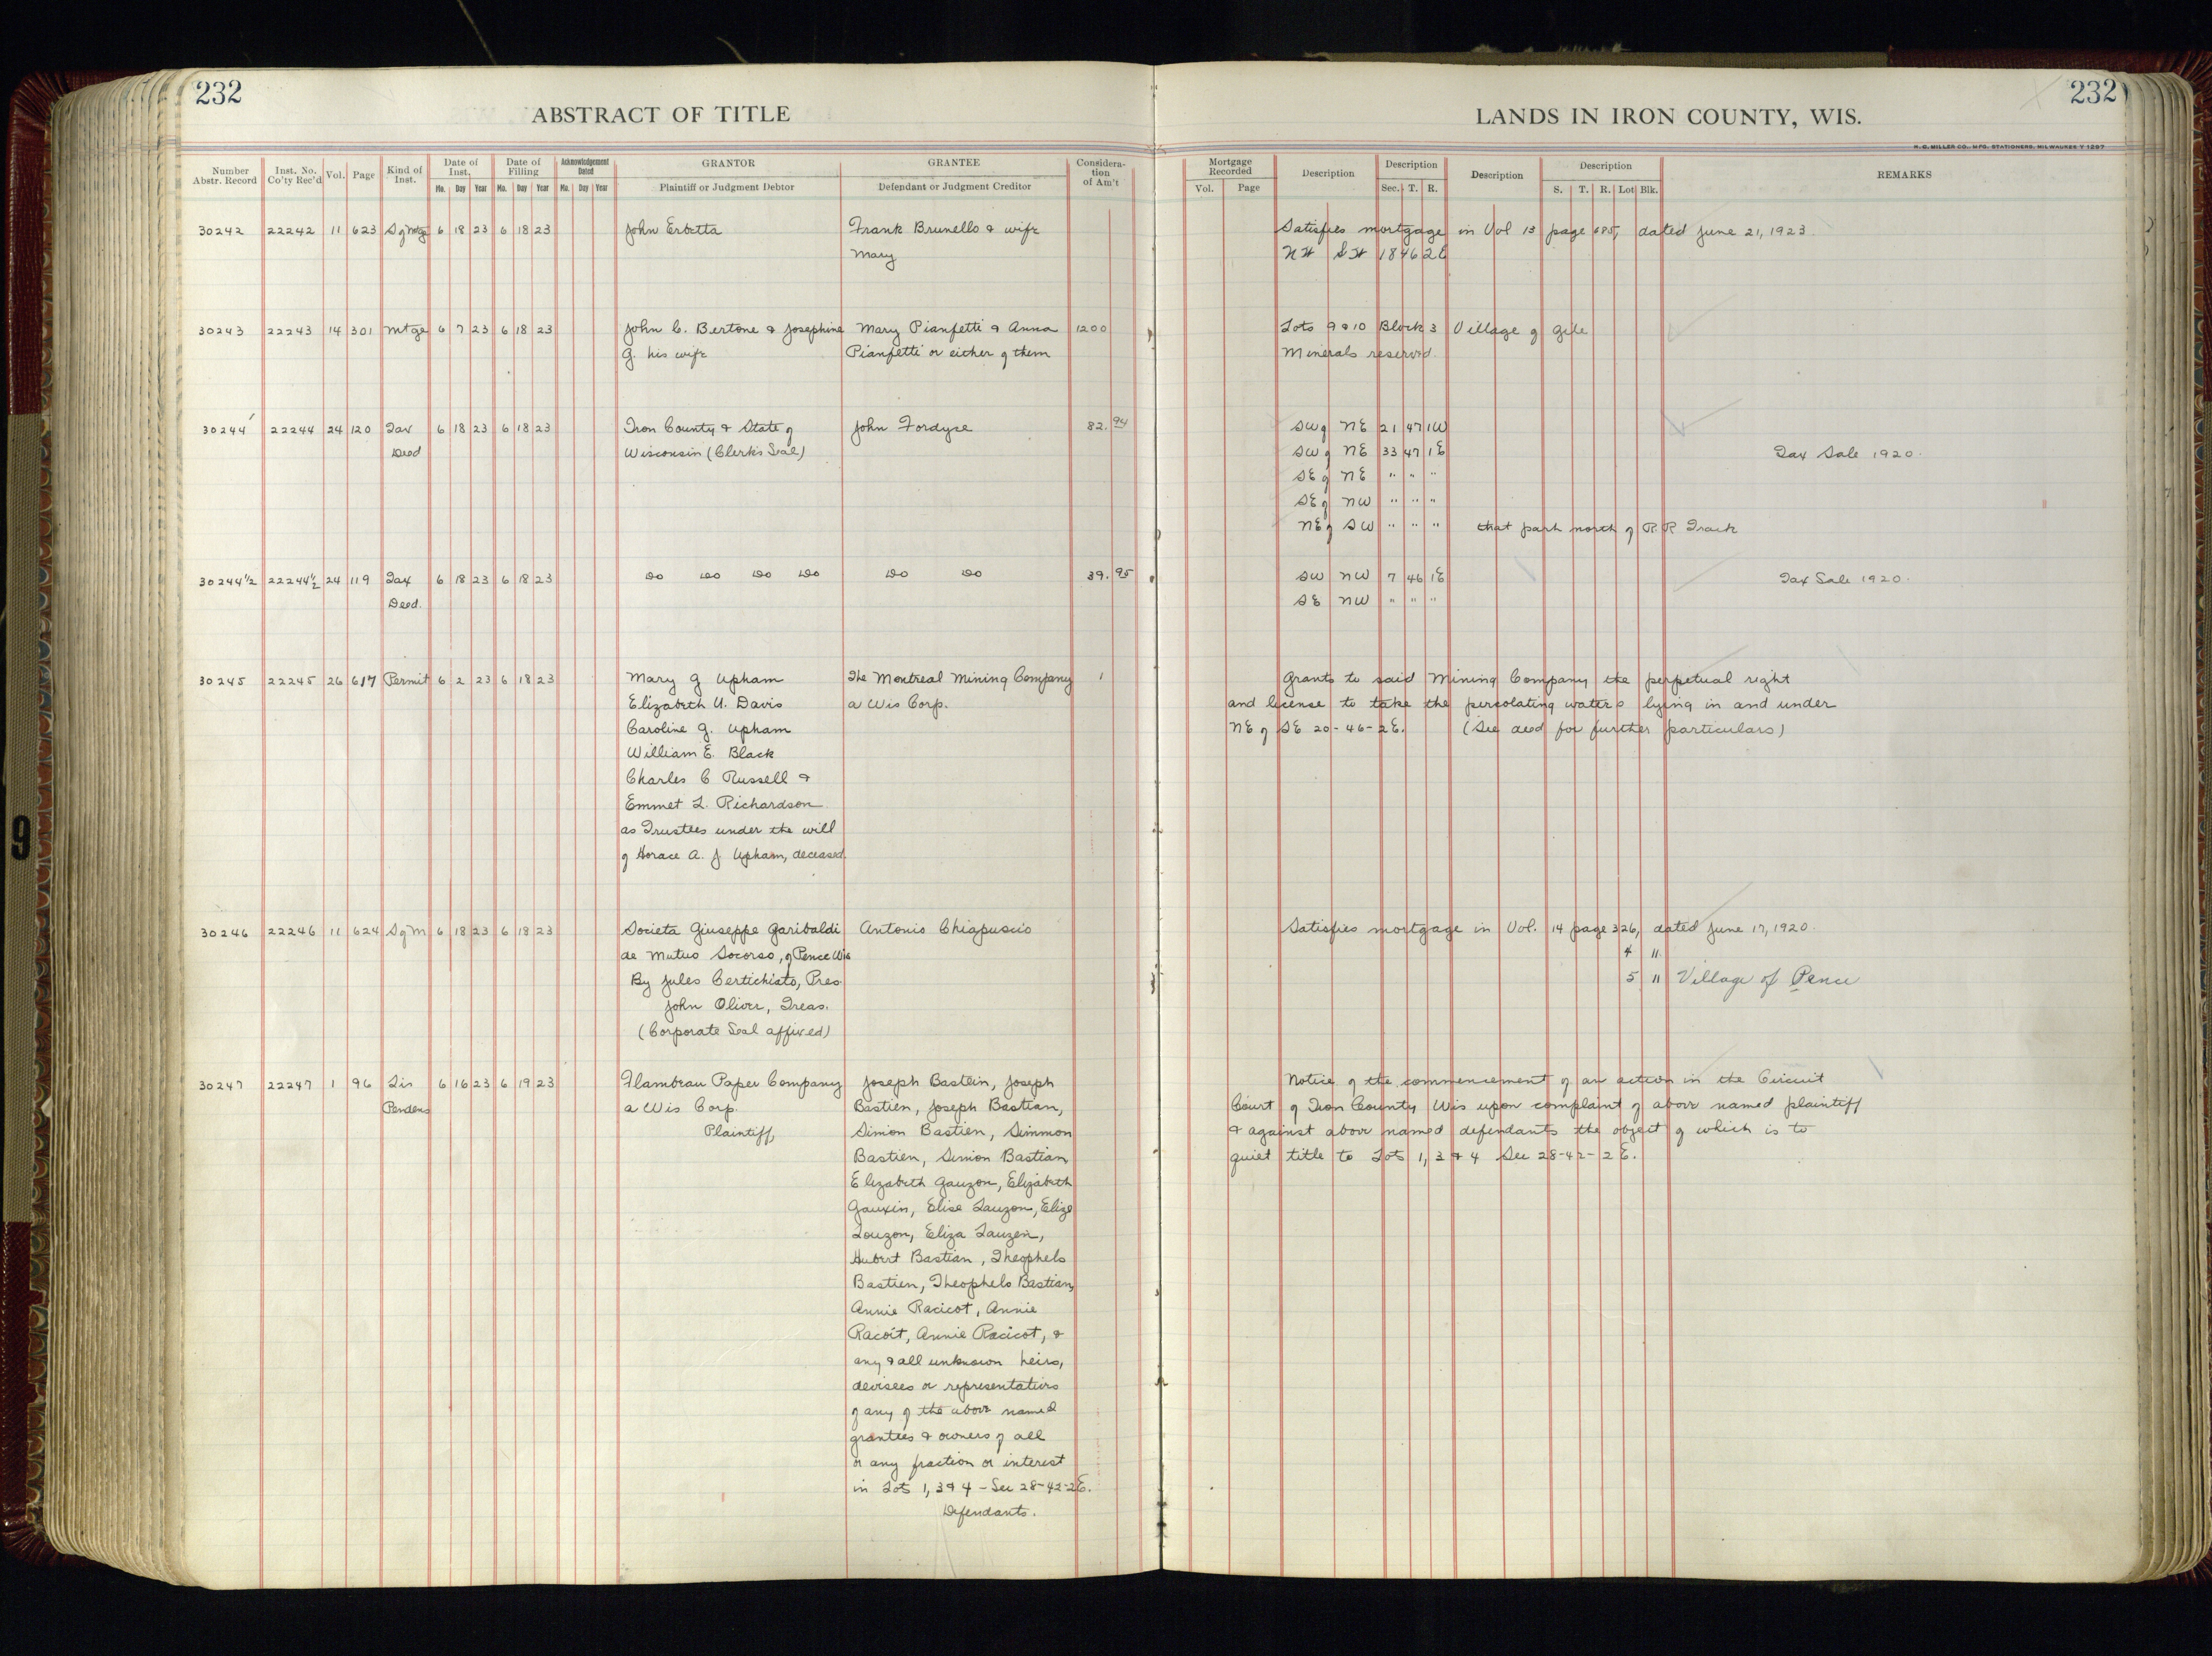 232
ABSTRACT OF TITLE
LANDS IN IRON COUNTY, WIS.
232
H. C. MILLER CO., MFG. STATIONERS, MILWAUKEE
Number Abstr. Record | Inst. No. Co'ty Rec'd | Vol. | Page | Kind of Inst. | Date of Inst. Mo. Day Year | Date of Filling Mo. Day Year | Acknowledgement Dated Mo. Day Year | GRANTOR Plaintiff or Judgment Debtor | GRANTEE Defendant or Judgment Creditor | Consideration of Am't | Mortgage Recorded Vol. Page | Description | Description Sec. T. R. | Description | Description S. T. R. Lot Blk. | REMARKS
30242 22242 11 623 S of Mtge 6 18 23 6 18 23 John Erbetta Frank Brunello & wife Satisfies mortgage in Vol 13 page 685, dated June 21, 1923.
Mary NW SW 18 46 2E
30243 22243 14 301 Mtge 6 7 23 6 18 23 John C. Bertone & Josephine Mary Pianfetti & Anna 1200 Lots 9 & 10 Block 3 Village of Gile
G. his wife Pianfetti or either of them Minerals reserved.
30244 22244 24 120 Tax 6 18 23 6 18 23 Iron County & State of John Fordyce 82.94 SW of NE 21 47 1W
Deed Wisconsin (Clerk's Seal) SW of NE 33 47 1E Tax Sale 1920.
SE of NE " " "
SE of NW " " "
NE of SW " " " that part north of R.R Track
30244½ 22244½ 24 119 Tax 6 18 23 6 18 23 Do Do Do Do Do Do 39.95 SW NW 7 46 1E Tax Sale 1920.
Deed. SE NW " " "
30245 22245 26 617 Permit 6 2 23 6 18 23 Mary G Upham The Montreal Mining Company 1 Grants to said Mining Company the perpetual right
Elizabeth U. Davis a Wis Corp. and license to take the percolating waters lying in and under
Caroline G. Upham NE of SE 20-46-2E. (See deed for further particulars)
William E. Black
Charles C Russell &
Emmet L. Richardson
as Trustees under the will
of Horace A. J. Upham, deceased.
30246 22246 11 624 S of M 6 18 23 6 18 23 Societa Giuseppe Garibaldi Antonio Chiapuscio Satisfies mortgage in Vol. 14 page 326, dated June 17, 1920.
de Mutuo Socorso, of Pence Wis 4 11
By Jules Certichiato, Pres. 5 11 Village of Pence
John Oliver, Treas.
(Corporate Seal affixed)
30247 22247 1 96 Lis 6 16 23 6 19 23 Flambeau Paper Company Joseph Bastein, Joseph Notice of the commencement of an action in the Circuit
Pendens a Wis Corp. Bastien, Joseph Bastian, Court of Iron County Wis upon complaint of above named plaintiff
Plaintiff, Simon Bastien, Simmon & against above named defendants the object of which is to
Bastien, Simon Bastian quiet title to Lots 1, 3 & 4 Sec 28-42-2E.
Elizabeth Gauzon, Elizabeth
Gauxin, Elise Lauzon, Elize
Louzon, Eliza Lauzen,
Hubert Bastian, Theophelo
Bastien, Theophelo Bastian,
Annie Racicot, Annie
Racoit, Annie Racicot, &
any & all unknown heirs,
devisees or representatives
of any of the above named
grantees & owners of all
or any fraction or interest
in Lots 1, 3 & 4 - Sec 28-42-2E.
Defendants.
9